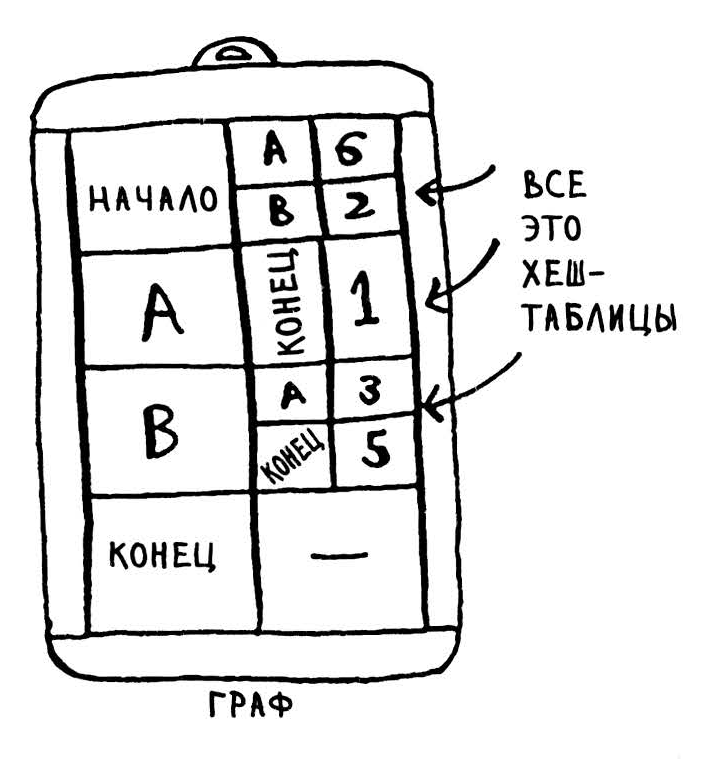 НАЧАЛО
A 6
B 2
A
КОНЕЦ 1
B
A 3
КОНЕЦ 5
КОНЕЦ —
ВСЕ
ЭТО
ХЕШ-
ТАБЛИЦЫ
ГРАФ